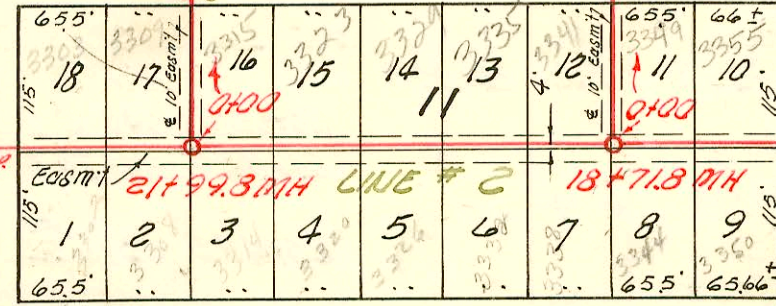 65.5' .. .. .. .. .. .. 65.5' 66±
3303 3309 3315 3323 3329 3335 3341 3349 3355
18 17 16 15 14 13 12 11 10
115' ⅊ 10' Easm't 4' ⅊ 10' Easm't 115'
0+00 11 0+00
Easm't 21+99.8 MH LINE # 2 18+71.8 MH
115' 115'
1 2 3 4 5 6 7 8 9
3308 3314 3320 3326 3338 3344 3350
65.5' .. .. .. .. .. .. 65.5' 65.66±